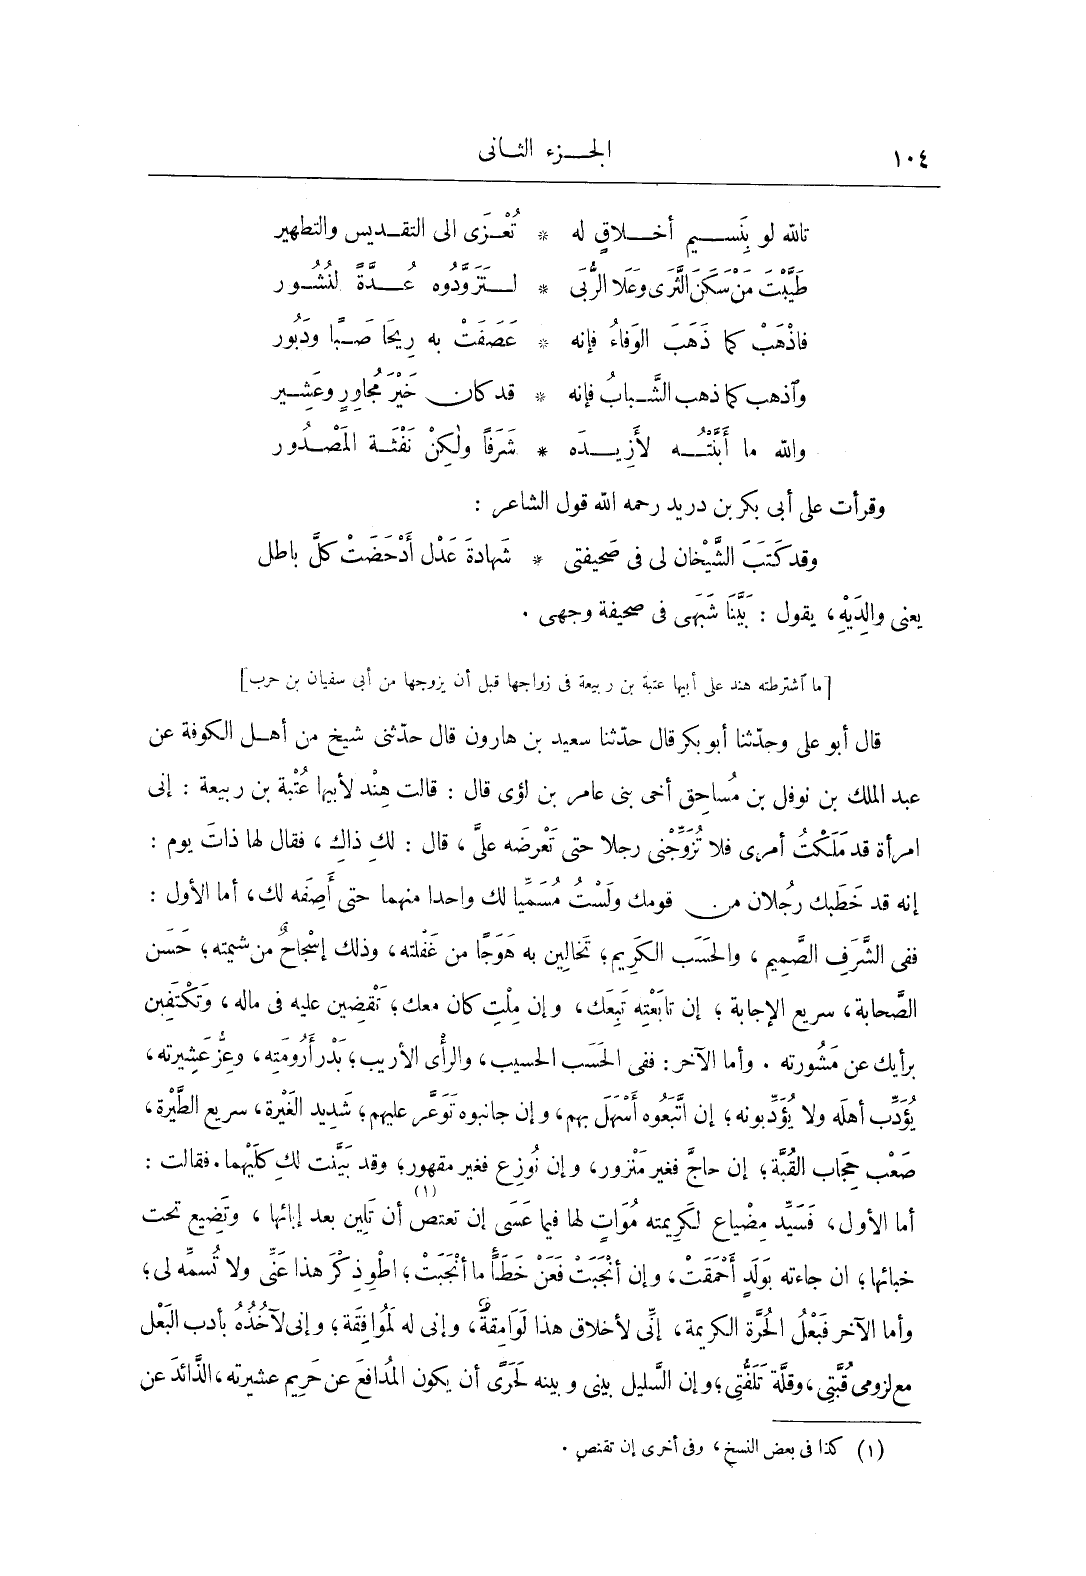 ١٠٤ الجـــزء الثـانى
تالله لو بِنَســـيم أخـــلاقٍ له * تُعْـزَى الى التقـديس والتطهير
طَيَّبْتَ مَنْ سَكَنَ الثَّرَى وعَلَا الرُّبَى * لــتَزَوَّدُوه عُــدَّةً لنُشُــور
فاذْهَبْ كما ذَهَبَ الوَفاءُ فإنه * عَصَفَتْ به رِيحَا صَــبًا ودَبُور
وآذهب كما ذهب الشَّـبابُ فإنه * قد كان خَيْرَ مُجاوِرٍ وعَشِــير
والله ما أَبَّنْتُـــه لأَزِيــدَه * شَرَفًا ولٰكِنْ نَفْثَـة المَصْـدُور
وقرأت على أبى بكر بن دريد رحمه الله قول الشاعر :
وقد كَتَبَ الشَّيْخان لى فى صَحيفتى * شَهادةَ عَدْل أَدْحَضَتْ كلَّ باطل
يعنى والِدَيْهِ، يقول : بَيَّنَا شَبَهَى فى صحيفة وجهى .
[ما آشترطته هند على أبيها عتبة بن ربيعة فى زواجها قبل أن يزوجها من أبى سفيان بن حرب]
قال أبو على وحدّثنا أبو بكر قال حدّثنا سعيد بن هارون قال حدّثنى شيخ من أهـل الكوفة عن
عبد الملك بن نوفل بن مُساحِق أخى بنى عامر بن لؤى قال : قالت هِنْد لأبيها عُتْبة بن ربيعة : إنى
امرأة قد مَلَكْتُ أمرى فلا تُزَوِّجْنى رجلا حتى تَعْرضَه علىَّ، قال : لكِ ذاكِ، فقال لها ذاتَ يوم :
إنه قد خَطَبك رجُلان من قومك ولَسْتُ مُسَمِّيا لك واحدا منهما حتى أَصِفَه لك، أما الأول :
ففى الشَّرَف الصَّمِيم، والحَسَب الكَرِيم؛ تَخَالِين به هَوَجًا من غَفْلته، وذلك إِسْجاحٌ من شيمته؛ حَسَن
الصَّحابة، سريع الإجابة؛ إن تابَعْتِه تَبِعَك، وإن مِلْتِ كان معك؛ تَقْضِين عليه فى ماله، وَتَكْتَفِين
برأيك عن مَشُورته . وأما الآخر: ففى الحَسَب الحسيب، والرأْى الأريب؛ بَدْر أَرُومَتِه، وعِزُّ عَشِيرته،
يُؤدِّب أهلَه ولا يُؤدِّبونه؛ إن اتَّبَعُوه أَسْهَلَ بهم، وإن جانبوه تَوَعَّر عليهم؛ شَدِيد الغَيْرة، سريع الطَّيْرة،
صَعْب حِجَاب القُبَّة؛ إن حاجَّ فغير مَنْزور، وإن نُوزِع فغير مقهور؛ وقد بَيَّنت لكِ كلَيْهما. فقالت :
أما الأول، فَسَيِّد مِضْياع لكَرِيمته مُوَاتٍ لها فيما عَسَى إن تعتص (١) أن تَلِين بعد إبائها، وتَضِيع تحت
خبائها؛ ان جاءته بَوَلَدٍ أَحْمَقَتْ، وإن أَنْجَبَتْ فَعَنْ خَطَأٍ ما أنْجَبَتْ؛ اطْوِ ذِكْرَ هذا عَنِّى ولا تُسمِّه لى؛
وأما الآخر فَبَعْلُ الحُرَّة الكريمة، إنِّى لأخلاق هذا لَوَامِقةٌ، وإنى له لَمُوافِقَة؛ وإنى لآخُذُهُ بأدب البَعْل
مع لزومى قُبَّتِى، وقلَّة تَلَفُّتِى؛ وإن السَّليل بينى وبينه لَحَرَىّ أن يكون المُدافعَ عن حَرِيم عشيرته، الذَّائدَ عن
(١) كذا فى بعض النسخ، وفى أخرى إن تقنص .